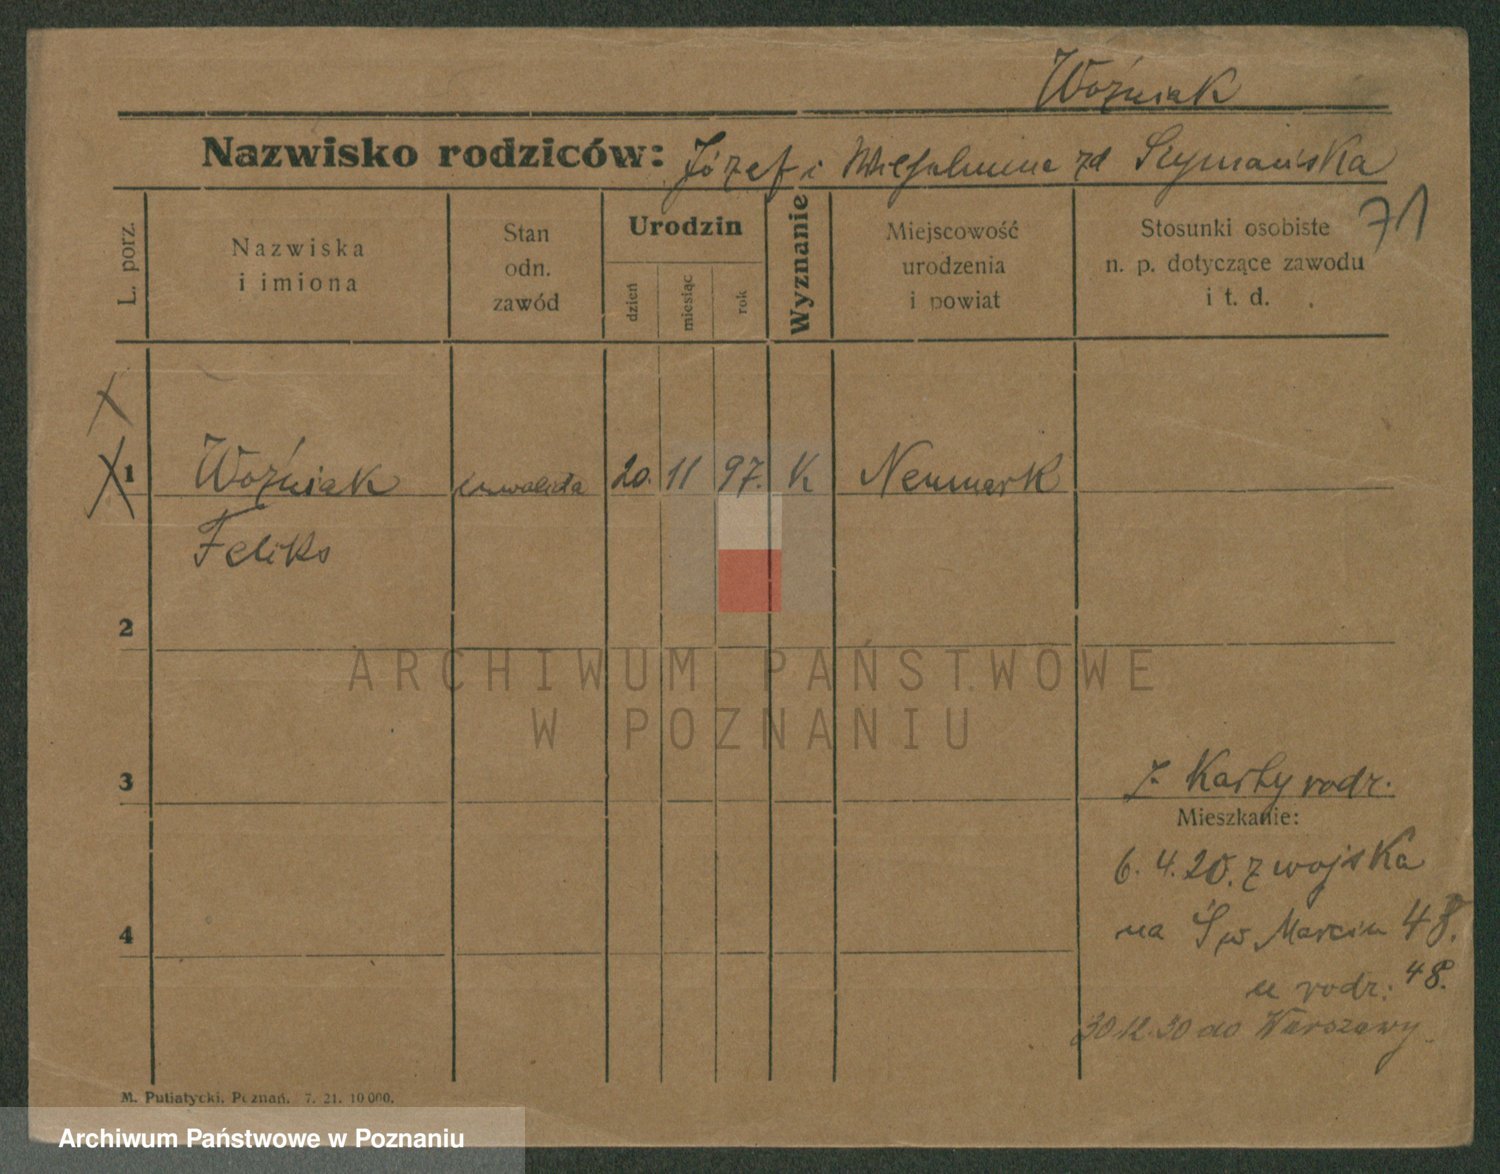 Woźniak
Nazwisko rodziców: Józef i Wilhelmina zd Szymańska
71
L. porz.
Nazwiska
i imiona
Stan
odn.
zawód
Urodzin
dzień
miesiąc
rok
Wyznanie
Miejscowość
urodzenia
i powiat
Stosunki osobiste
n. p. dotyczące zawodu
i t. d.
1 Woźniak inwalida 20. 11 97. K Neumark
Feliks
2
ARCHIWUM PAŃSTWOWE
W POZNANIU
3
z Karty rodz.
Mieszkanie:
6. 4. 20. z wojska
4
na Św Marcin 48.
u rodz: 48.
30 12. 30 do Warszawy
M. Putiatycki, Poznań. 7. 21. 10 000.
Archiwum Państwowe w Poznaniu